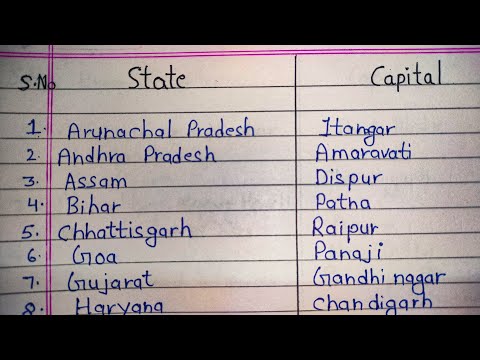 S.No State Capital
1. Arunachal Pradesh Itangar
2. Andhra Pradesh Amaravati
3. Assam Dispur
4. Bihar Patna
5. Chhattisgarh Raipur
6. Goa Panaji
7. Gujarat Gandhi nagar
8. Haryana Chandigarh